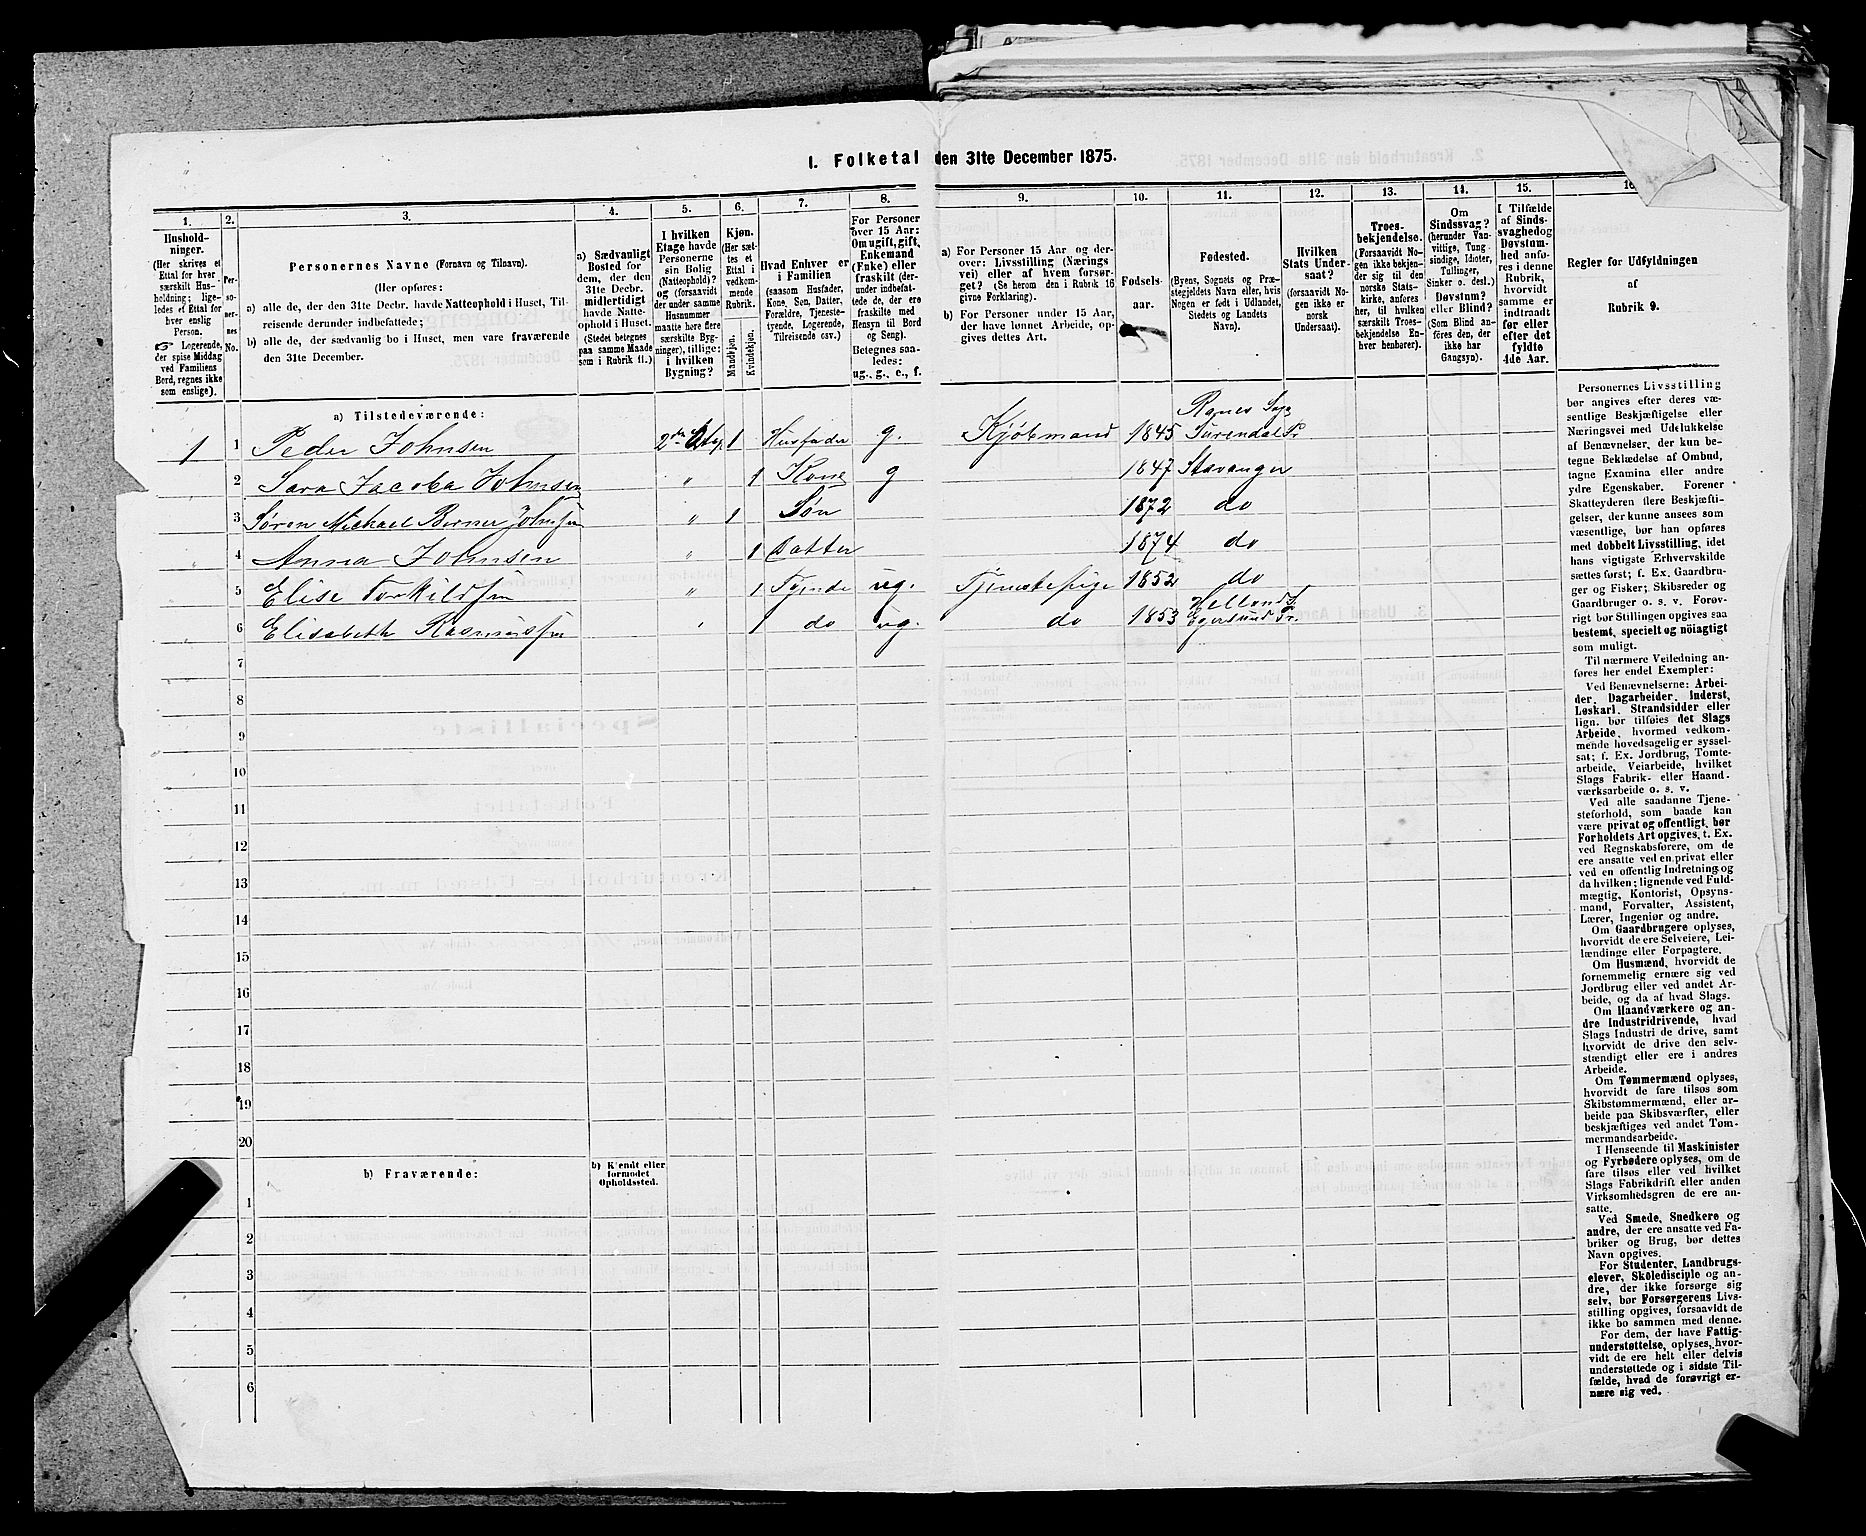 1. Folketal den 31te December 1875.
1. 2. 3. 4. 5. 6. 7. 8. 9. 10. 11. 12. 13. 14. 15. 16
Hushold-
ninger.
(Her skrives et
Ettal for hver
særskilt Hus-
holdning; lige-
ledes et Ettal for
hver enslig
Person.
Logerende,
der spise Middag
ved Familiens
Bord, regnes ikke
som enslige).
Per-
so-
ner-
nes
No.
Personernes Navne (Fornavn og Tilnavn).
(Her opføres:
a) alle de, der den 31te Decbr. havde Natteophold i Huset, Til-
reisende derunder indbefattede;
b) alle de, der sædvanlig bo i Huset, men vare fraværende
den 31te December.
a) Sædvanligt
Bosted for
dem, der den
31te Decbr.
midlertidigt
havde Natte-
ophold i Huset.
(Stedet betegnes
paa samme Maade
som i Rubrik 11.)
I hvilken
Etage havde
Personerne
sin Bolig
(Natteophold)?
og (forsaavidt
der under samme
Husnummer
maatte høre flere
særskilte Byg-
ninger), tillige:
i hvilken
Bygning?
Kjøn.
(Her sæt-
tes et
Ettal i
vedkom-
mende
Rubrik.
Mandkjøn.
Kvindekjøn.
Hvad Enhver er
i Familien
(saasom Husfader,
Kone, Søn, Datter,
Forældre, Tjeneste-
tyende, Logerende,
Tilreisende osv.)
For Personer
over 15 Aar:
Om ugift, gift,
Enkemand
(Enke) eller
fraskilt (der-
under indbefat-
tede de, der ere
fraskilte med
Hensyn til Bord
og Seng).
Betegnes saa-
ledes:
ug., g., e., f.
a) For Personer 15 Aar og der-
over: Livsstilling (Nærings
vei) eller af hvem forsør-
get? (Se herom den i Rubrik 16
givne Forklaring).
b) For Personer under 15 Aar,
der have lønnet Arbeide, op-
gives dettes Art.
Fødsels-
aar.
Fødested.
(Byens, Sognets og Præ-
stegjeldets Navn eller, hvis
Nogen er født i Udlandet,
Stedets og Landets
Navn).
Hvilken
Stats Under-
saat?
(forsaavidt No-
gen ikke er
norsk
Undersaat).
Troes-
bekjendelse.
(Forsaavidt No-
gen ikke bekjen-
der sig til den
norske Stats-
kirke, anføres
her, til hvilken
særskilt Troes-
bekjendelse En-
hver henhører).
Om
Sindssvag?
(herunder Van-
vittige, Tung-
sindige, Idioter,
Tullinger,
Sinker o. desl.)
Døvstum?
eller Blind?
(Som Blind an-
føres den, der
ikke har
Gangsyn).
I Tilfælde
af Sinds-
svaghed og
Døvstum-
hed anfø-
res i denne
Rubrik,
hvorvidt
samme er
indtraadt
før eller
efter det
fyldte
4de Aar.
Regler for Udfyldningen
af
Rubrik 9.
a) Tilstedeværende:
Ranes Sogn
1 1 Peder Johnsen 2den Etage 1 Husfader g. Kjøbmand 1845 Surendal Pr
2 Sara Jacoba Johnsen " 1 Kone g 1847 Stavanger
3 Søren Michael Berner Johnsen " 1 Søn 1872 do
4 Anna Johnsen " 1 Datter 1874 do
5 Elise Torkildsen " 1 Tyende ug. Tjenestepige 1852 do
Hellands S
6 Elisabeth Rasmussen " 1 do ug. do 1853 Egersund Pr.
7
8
9
10
11
12
13
14
15
16
17
18
19
20
b) Fraværende:
b) Kjendt eller
formodet
Opholdssted.
1
2
3
4
5
6
Personernes Livsstilling
bør angives efter deres væ-
sentlige Beskjæftigelse eller
Næringsvei med Udelukkelse
af Benævnelser, der kun be-
tegne Beklædelse af Ombud,
tagne Examina eller andre
ydre Egenskaber. Forener
Skatteyderen flere Beskjæfti-
gelser, der kunne ansees som
væsentlige, bør han opføres
med dobbelt Livsstilling, idet
hans vigtigste Erhvervskilde
sættes først; f. Ex. Gaardbru-
ger og Fisker; Skibsreder og
Gaardbruger o. s. v. Forøv-
rigt bør Stillingen opgives saa
bestemt, specielt og nöiagtigt
som muligt.
Til nærmere Veiledning an-
føres her endel Exempler:
Ved Benævnelserne: Arbei-
der, Dagarbeider, Inderst,
Løskarl, Strandsidder eller
lign. bør tilføies det Slags
Arbeide, hvormed vedkom-
mende hovedsagelig er syssel-
sat; f. Ex. Jordbrug, Tomte-
arbeide, Veiarbeide, hvilket
Slags Fabrik- eller Haand-
værksarbeide o. s. v.
Ved alle saadanne Tjene-
steforhold, som baade kan
være privat og offentligt, bør
Forholdets Art opgives, t. Ex.
ved Regnskabsførere, om de
ere ansatte ved en privat eller
ved en offentlig Indretning og
da hvilken; lignende ved Fuld-
mægtig, Kontorist, Opsyns-
mand, Forvalter, Assistent,
Lærer, Ingeniør og andre.
Om Gaardbrugere oplyses,
hvorvidt de ere Selveiere, Lei-
lændinge eller Forpagtere.
Om Husmænd, hvorvidt de
fornemmelig ernære sig ved
Jordbrug eller ved andet Ar-
beide, og da af hvad Slags.
Om Haandværkere og an-
dre Industridrivende, hvad
Slags Industri de drive, samt
hvorvidt de drive den selv-
stændigt eller ere i andres
Arbeide.
Om Tømmermænd oplyses,
hvorvidt de fare tilsøs som
Skibstømmermænd, eller ar-
beide paa Skibsværfter, eller
beskjæftiges ved andet Tøm-
mermandsarbeide.
I Henseende til Maskinister
og Fyrbødere oplyses, om de
fare tilsøs eller ved hvilket
Slags Fabrikdrift eller anden
Virksomhedsgren de ere an-
satte.
Ved Smede, Snedkere og
andre, der ere ansatte ved Fa-
briker og Brug, bør dettes
Navn opgives.
For Studenter, Landbrugs-
elever, Skoledisciple og an-
dre, der ikke forsørge sig
selv, bør Forsørgerens Livs-
stilling opgives, forsaavidt de
ikke bo sammen med denne.
For dem, der have Fattig-
understøttelse, oplyses, hvor-
vidt de ere helt eller delvis
understøttede og i sidste Til-
fælde, hvad de forøvrigt er-
nære sig ved.